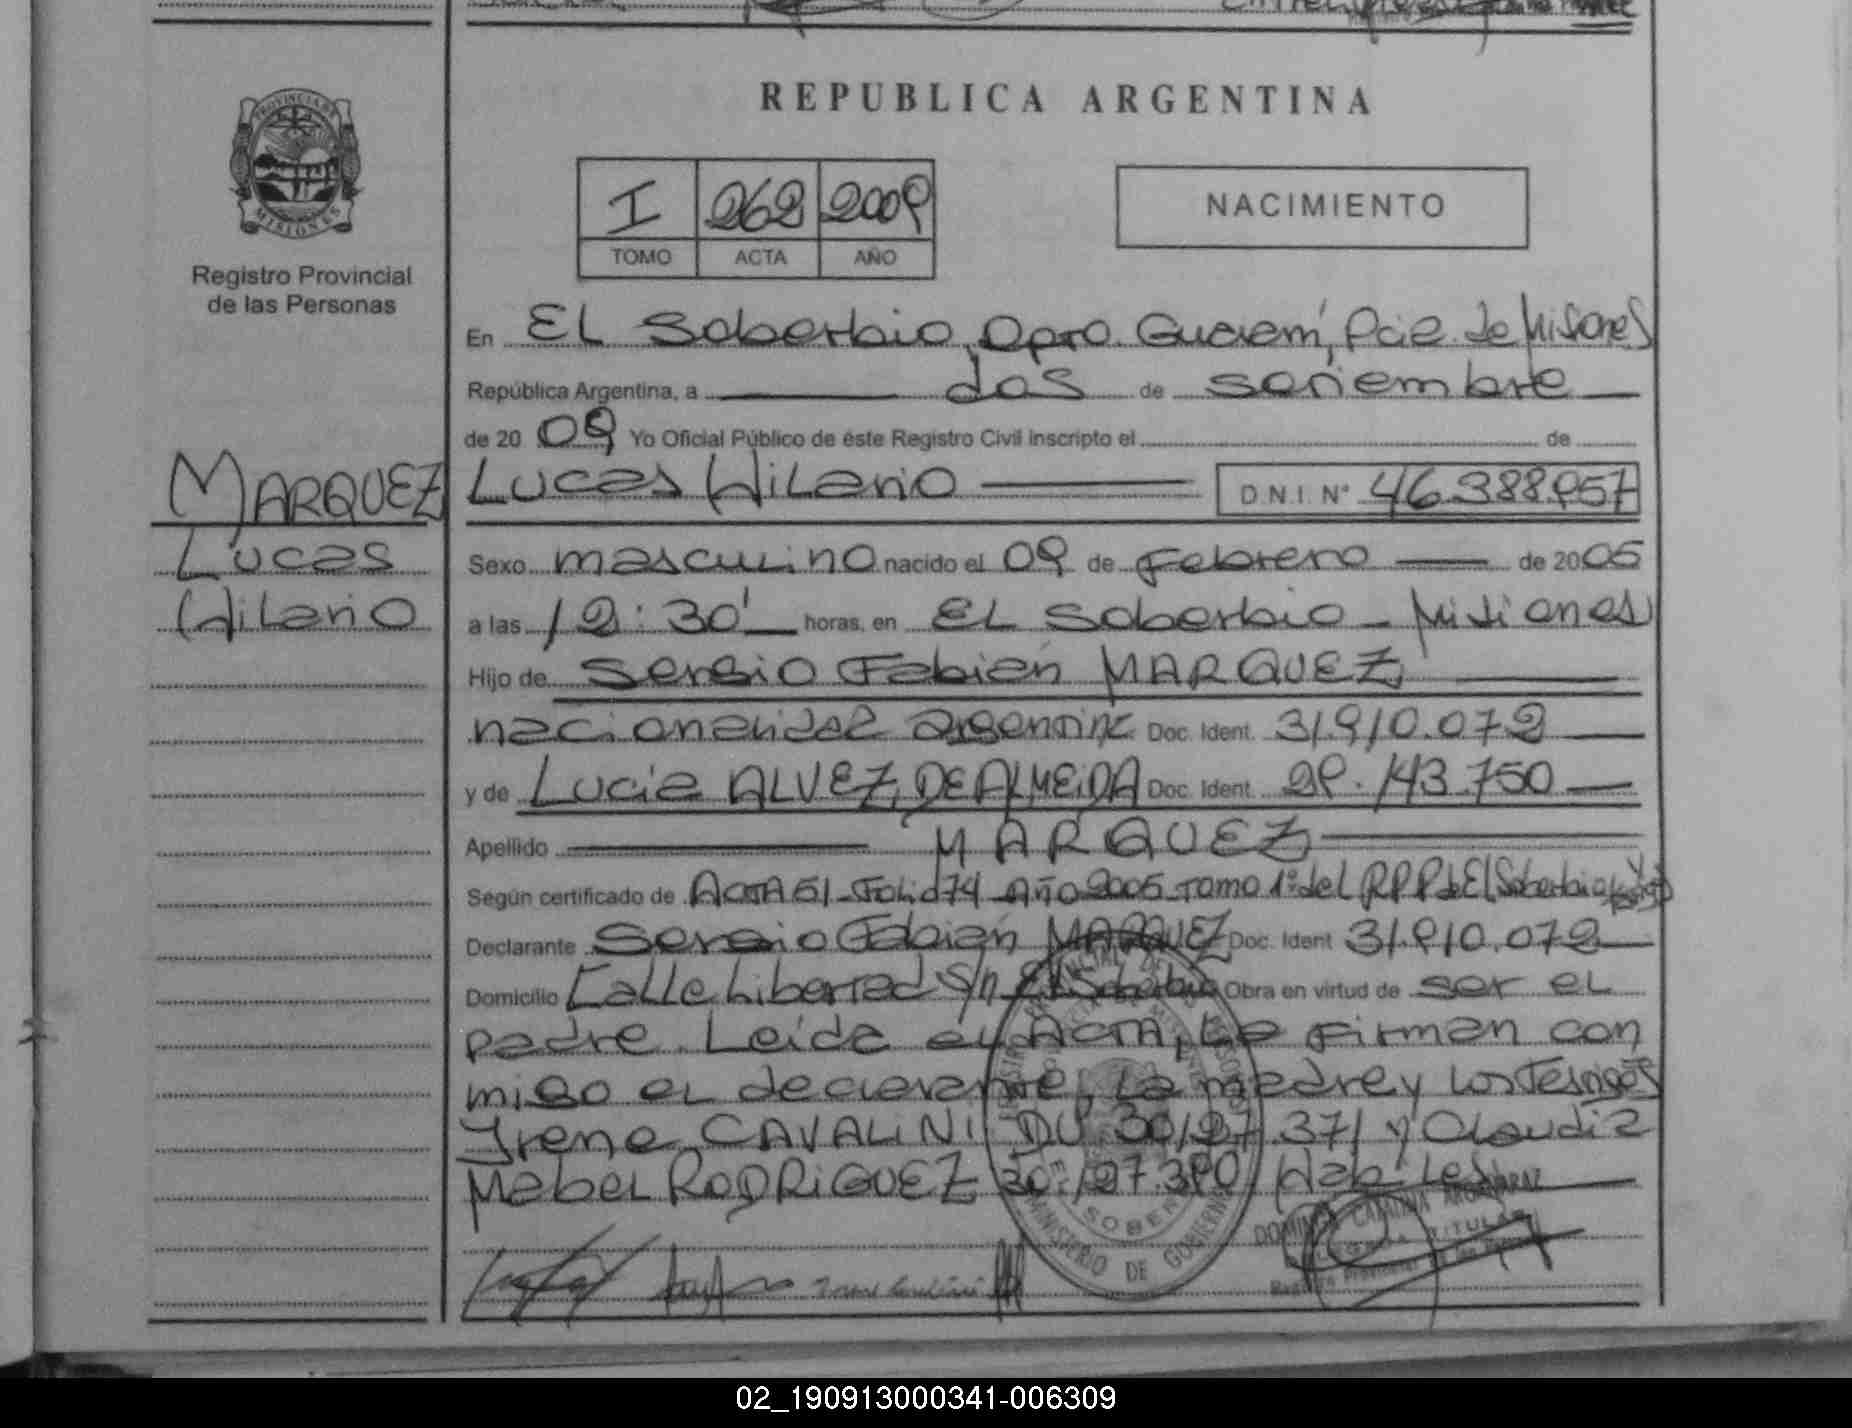 REPUBLICA ARGENTINA
PROVINCIA DE
MISIONES
Registro Provincial
de las Personas
I 262 2009
TOMO ACTA AÑO
NACIMIENTO
En EL Soberbio, Dpto. Guaraní, Pcia. de Misiones
República Argentina, a dos de setiembre
de 20 09 Yo Oficial Público de éste Registro Civil inscripto el de
MARQUEZ
Lucas
Hilario
Lucas Hilario D.N.I. Nº 46.388.957
Sexo masculino nacido el 09 de Febrero de 2005
a las 12:30' horas, en EL Soberbio - Misiones
Hijo de Sergio Fabián MARQUEZ
nacionalidad argentina Doc. Ident. 31.910.072
y de Lucia ALVEZ DE ALMEIDA Doc. Ident. 29.143.750
Apellido MARQUEZ
Según certificado de ACTA 51 - Folio 74 - Año 2005 - Tomo 1º del RPP de El Soberbio
Declarante Sergio Fabián MARQUEZ Doc. Ident 31.910.072
Domicilio Calle Libertad S/n El Soberbio Obra en virtud de ser el
padre. Leida el ACTA, La firman con
migo el declarante, La madre y Los Testigos
Irene CAVALINI DU 30.127.371 y Claudia
Mabel RODRIGUEZ 30.127.390 Habiles
MINISTERIO DE GOBIERNO
TITULAR
02_190913000341-006309